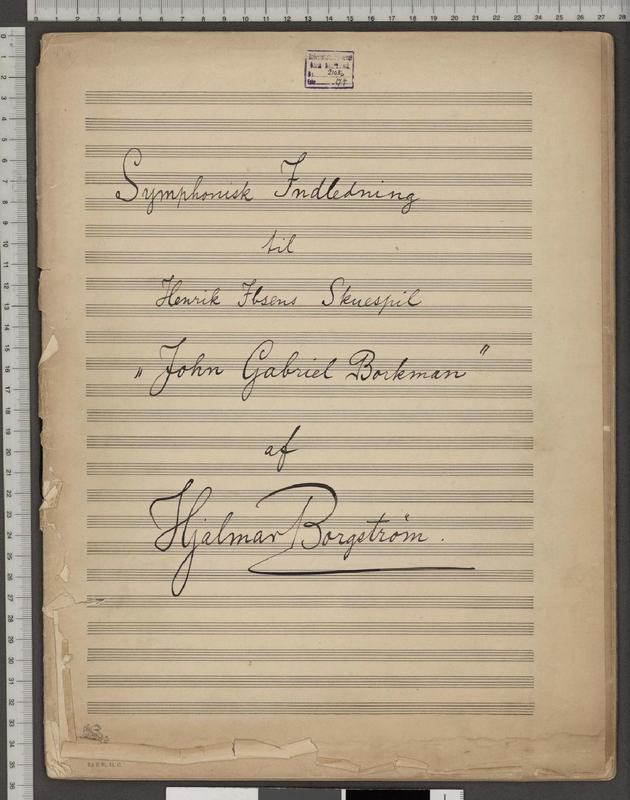 Symphonisk Indledning
til
Henrik Ibsens Skuespil
„John Gabriel Borkman"
af
Hjalmar Borgström.